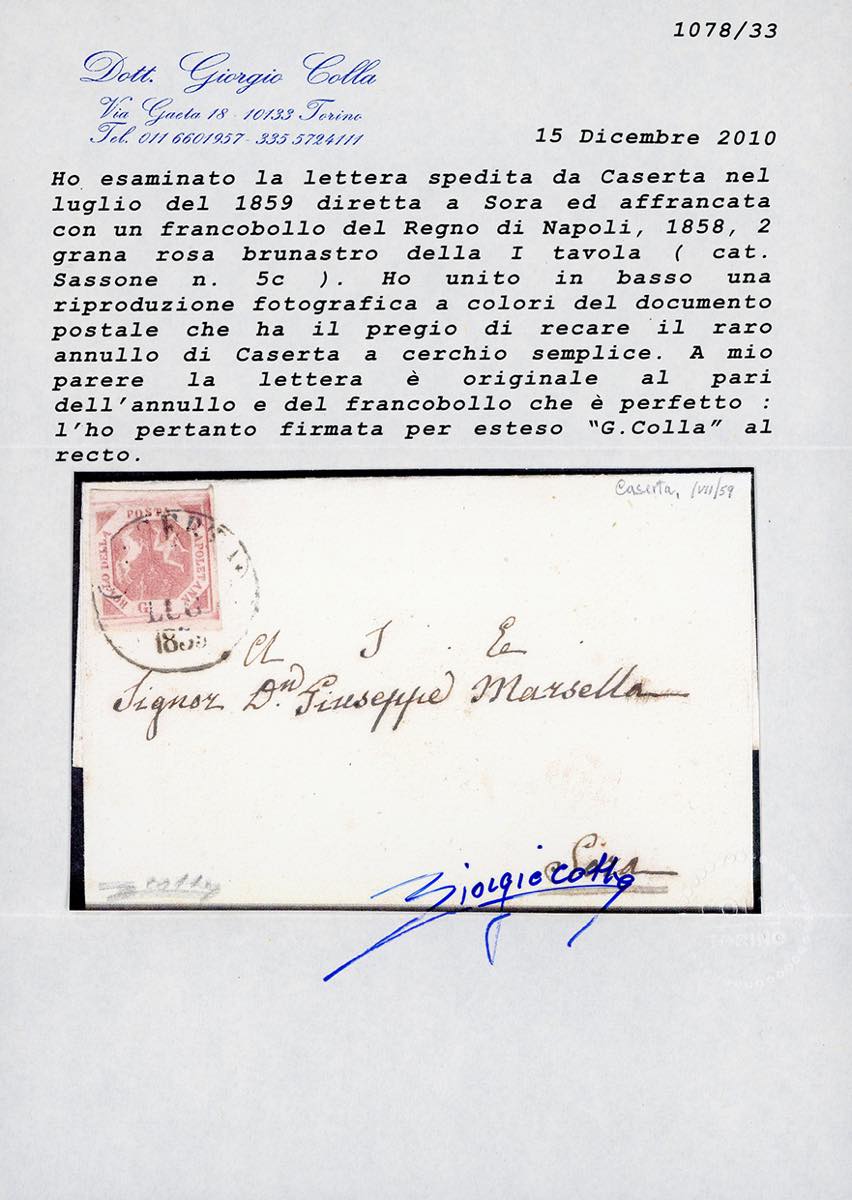 1078/33
Dott. Giorgio Colla
Via Gaeta 18 - 10133 Torino
Tel. 011 6601957 - 335 5724111
15 Dicembre 2010
Ho esaminato la lettera spedita da Caserta nel
luglio del 1859 diretta a Sora ed affrancata
con un francobollo del Regno di Napoli, 1858, 2
grana rosa brunastro della I tavola ( cat.
Sassone n. 5c ). Ho unito in basso una
riproduzione fotografica a colori del documento
postale che ha il pregio di recare il raro
annullo di Caserta a cerchio semplice. A mio
parere la lettera è originale al pari
dell'annullo e del francobollo che è perfetto :
l'ho pertanto firmata per esteso “G.Colla” al
recto.
Caserta, /VII/59
POSTA
BOLLO DELLA
NAPOLETANA
G
LUG
185
A S E
Signor Dn. Giuseppe Marsella
Sora
Giorgio Colla